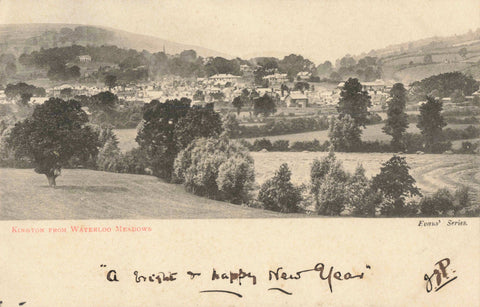 KINGTON FROM WATERLOO MEADOWS
Evans' Series.
"A bright & happy New Year"